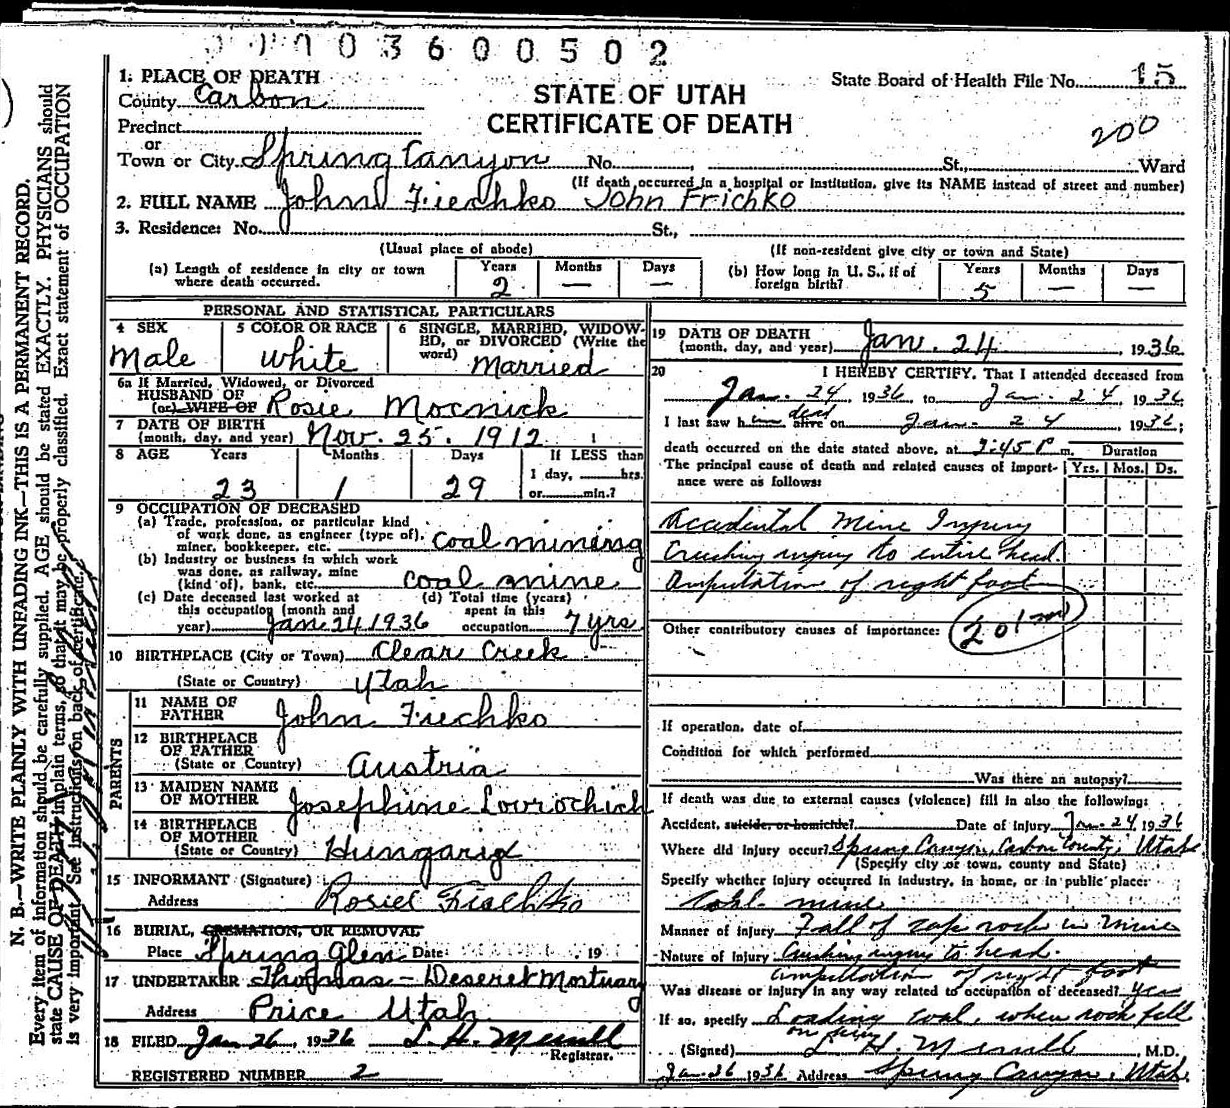 0000003600502
1. PLACE OF DEATH
County Carbon
STATE OF UTAH
CERTIFICATE OF DEATH
State Board of Health File No. 15
200
Precinct
or
Town or City. Spring Canyon No. St., Ward
(If death occurred in a hospital or institution, give its NAME instead of street and number)
2. FULL NAME John Fiechko John Frichko
3. Residence: No. St.,
(Usual place of abode) (If non-resident give city or town and State)
(a) Length of residence in city or town where death occurred. Years 2 Months — Days —
(b) How long in U. S., if of foreign birth? Years 5 Months — Days —
PERSONAL AND STATISTICAL PARTICULARS
4 SEX Male
5 COLOR OR RACE White
6 SINGLE, MARRIED, WIDOWED, or DIVORCED (Write the word) Married
6a If Married, Widowed, or Divorced
HUSBAND OF
(or) WIFE OF Rosie Mocnick
7 DATE OF BIRTH
(month, day, and year) Nov. 25. 1912
8 AGE Years 23 Months 1 Days 29 If LESS than 1 day, hrs. or min.?
9 OCCUPATION OF DECEASED
(a) Trade, profession, or particular kind of work done, as engineer (type of), miner, bookkeeper, etc. coal mining
(b) Industry or business in which work was done, as railway, mine (kind of), bank, etc. coal mine
(c) Date deceased last worked at this occupation (month and year) Jan 24 1936
(d) Total time (years) spent in this occupation 7 yrs
10 BIRTHPLACE (City or Town) Clear Creek
(State or Country) Utah
PARENTS
11 NAME OF FATHER John Fiechko
12 BIRTHPLACE OF FATHER
(State or Country) Austria
13 MAIDEN NAME OF MOTHER Josephine Lovrochich
14 BIRTHPLACE OF MOTHER
(State or Country) Hungaria
15 INFORMANT (Signature)
Address Rosie Fiechko
16 BURIAL, CREMATION, OR REMOVAL
Place Spring Glen Date 19
17 UNDERTAKER Thomas - Deseret Mortuary
Address Price Utah
18 FILED Jan 26, 1936 L. H. Merrill
Registrar.
REGISTERED NUMBER 2
19 DATE OF DEATH
(month, day, and year) Jan. 24, 1936
20 I HEREBY CERTIFY, That I attended deceased from
Jan. 24 1936, to Jan. 24, 1936,
I last saw him dead alive on Jan. 24, 1936;
death occurred on the date stated above, at 3:45 P m.
Duration
Yrs. Mos. Ds.
The principal cause of death and related causes of importance were as follows:
Accidental Mine Injury
Crushing injury to entire head.
Amputation of right foot
Other contributory causes of importance: 201
If operation, date of
Condition for which performed
Was there an autopsy?
If death was due to external causes (violence) fill in also the following:
Accident, suicide, or homicide? Date of injury Jan. 24, 1936
Where did injury occur? Spring Canyon, Carbon County, Utah
(Specify city or town, county and State)
Specify whether injury occurred in industry, in home, or in public place:
Coal mine
Manner of injury Fall of cap rock in Mine
Nature of Injury Crushing injury to head.
amputation of right foot
Was disease or injury in any way related to occupation of deceased? yes
If so, specify Loading coal, when rock fell
on him
(Signed) L. H. Merrill, M.D.
Jan. 26 1936 Address Spring Canyon, Utah.
N. B.—WRITE PLAINLY WITH UNFADING INK—THIS IS A PERMANENT RECORD.
Every item of information should be carefully supplied. AGE should be stated EXACTLY. PHYSICIANS should
state CAUSE OF DEATH in plain terms, so that it may be properly classified. Exact statement of OCCUPATION
is very important. See instructions on back of certificate.